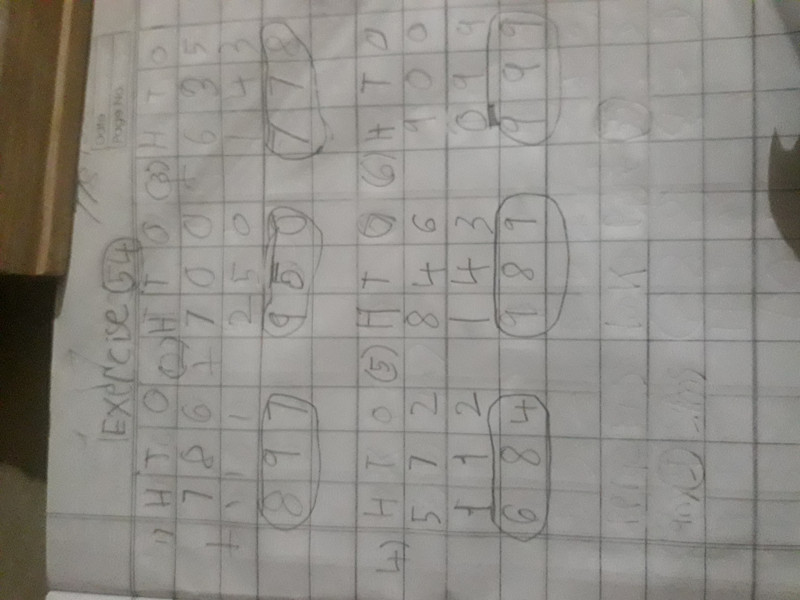 Date
Page No.
Exercise 54
1) H T O (2) H T O (3) H T O
7 8 6 + 7 0 0 + 6 3 5
+ 1 1 1 2 5 0 1 4 3
8 9 7 9 5 0 7 7 8
4) H T O (5) H T O (6) H T O
5 7 2 8 4 6 9 0 0
1 1 2 1 4 3 0 9 9
6 8 4 9 8 9 9 9 9